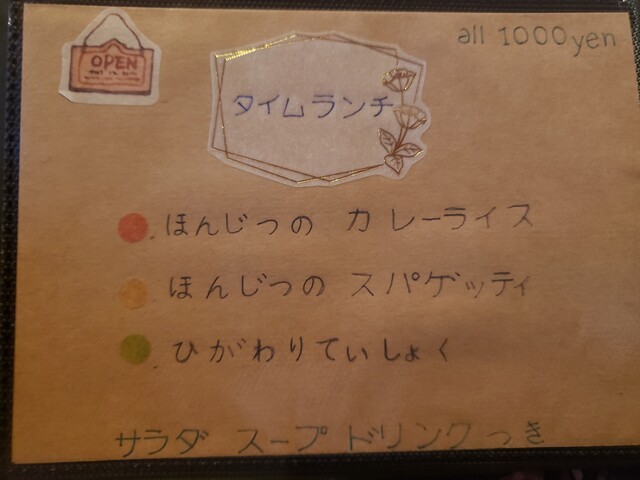 OPEN
all 1000yen
タイムランチ
ほんじつの カレーライス
ほんじつの スパゲッティ
ひがわりていしょく
サラダ スープ ドリンクつき